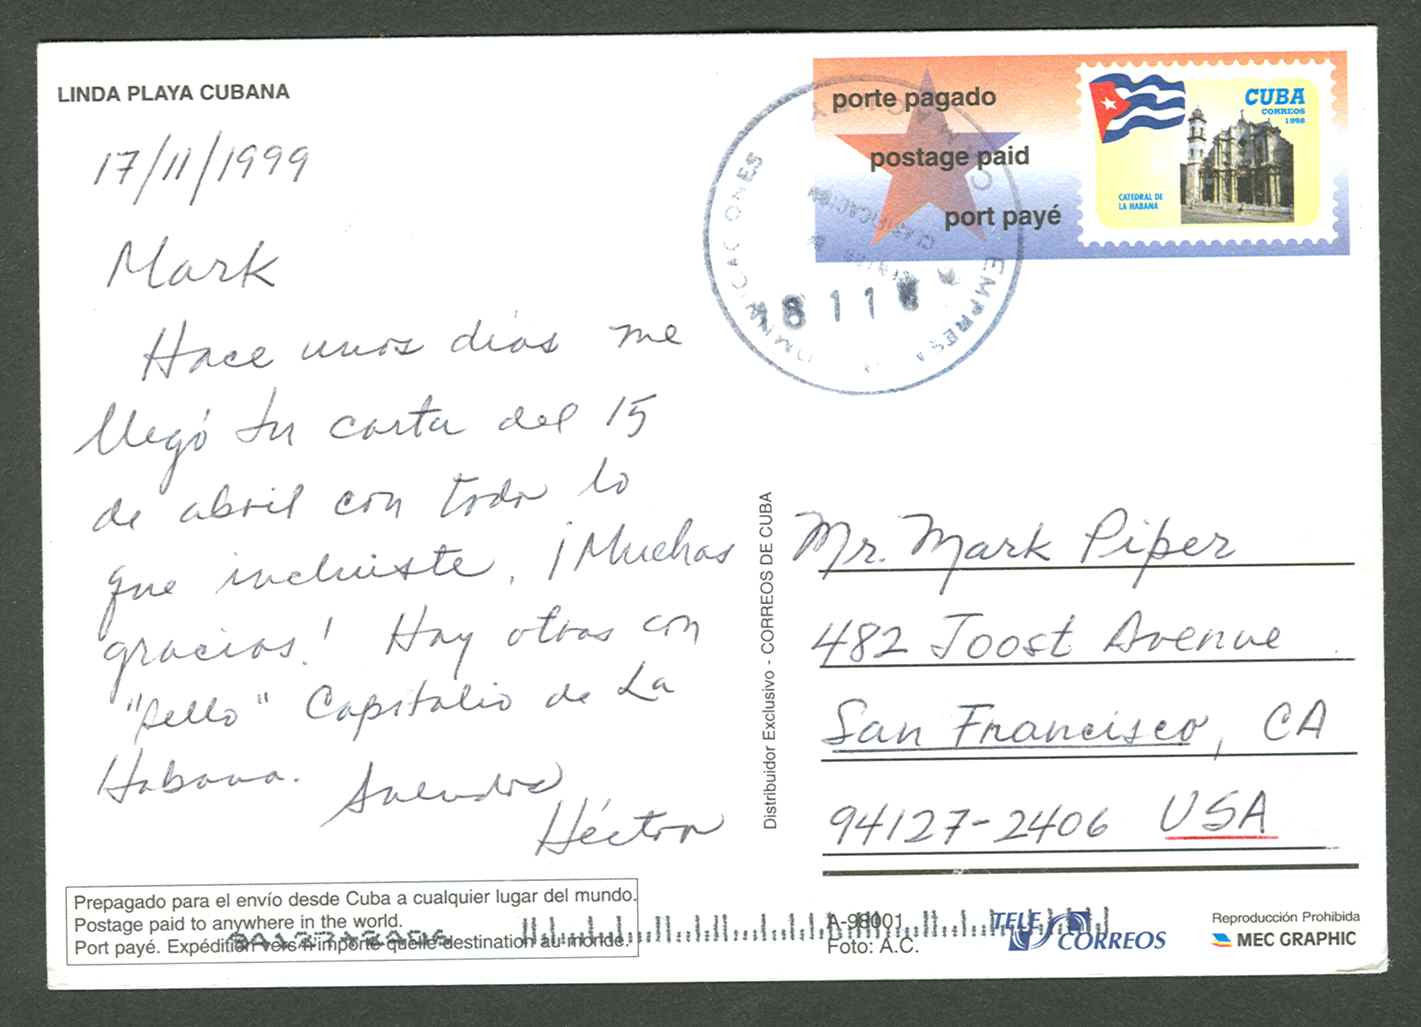 LINDA PLAYA CUBANA
17/11/1999
Mark
Hace unos días me
llegó tu carta del 15
de abril con todo lo
que incluiste. ¡Muchas
gracias! Hay otras con
"sello" Capitolio de La
Habana.
Héctor
Prepagado para el envío desde Cuba a cualquier lugar del mundo.
Postage paid to anywhere in the world.
Port payé. Expédition vers n'importe quelle destination au monde.
Distribuidor Exclusivo - CORREOS DE CUBA
porte pagado
postage paid
port payé
CUBA
CORREOS
1998
CATEDRAL DE
LA HABANA
EMPRESA
CLASIFICACION
18 11
Mr. Mark Piper
482 Joost Avenue
San Francisco, CA
94127-2406 USA
A-98001
Foto: A.C.
TELE
CORREOS
Reproducción Prohibida
MEC GRAPHIC